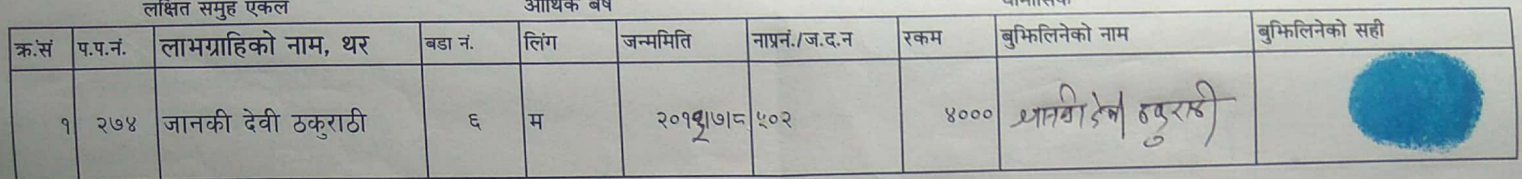 लक्षित समुह एकल आर्थिक बर्ष
क्र.सं प.प.नं. लाभग्राहिको नाम, थर बडा नं. लिंग जन्ममिति नाप्रनं./ज.द.न रकम बुझिलिनेको नाम बुझिलिनेको सही
१ २७४ जानकी देवी ठकुराठी ६ म ५०२ ४००० जानकी देवी ठकुराठी